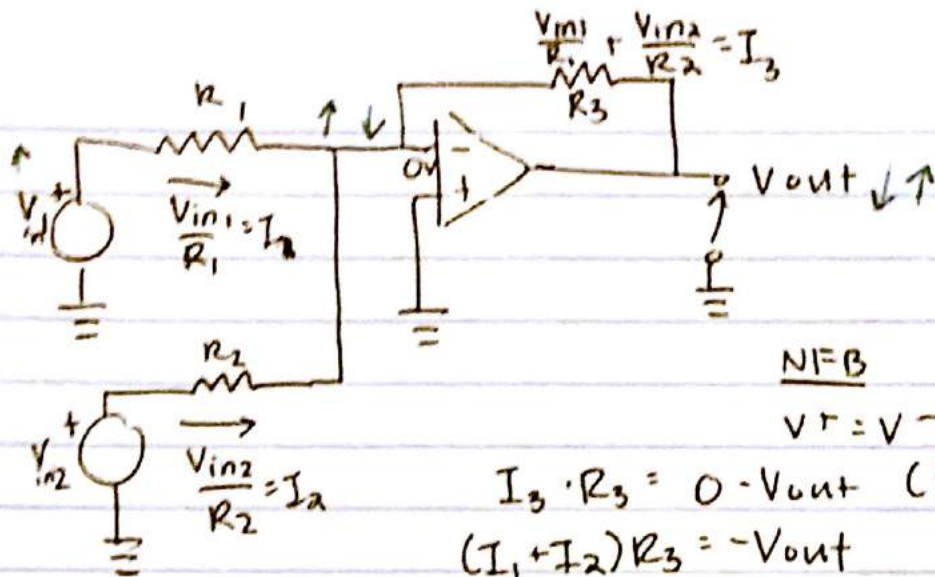 Vin1/R1 + Vin2/R2 = I3
R1
R3
↑ ↓
0V
-
+
Vout ↓ ↑
↑
+
Vin1
→
Vin1/R1 = I2
R2
NFB
V+ = V-
+
Vin2
→
Vin2/R2 = I2
I3 · R3 = 0 - Vout (
(I1 + I2) R3 = -Vout